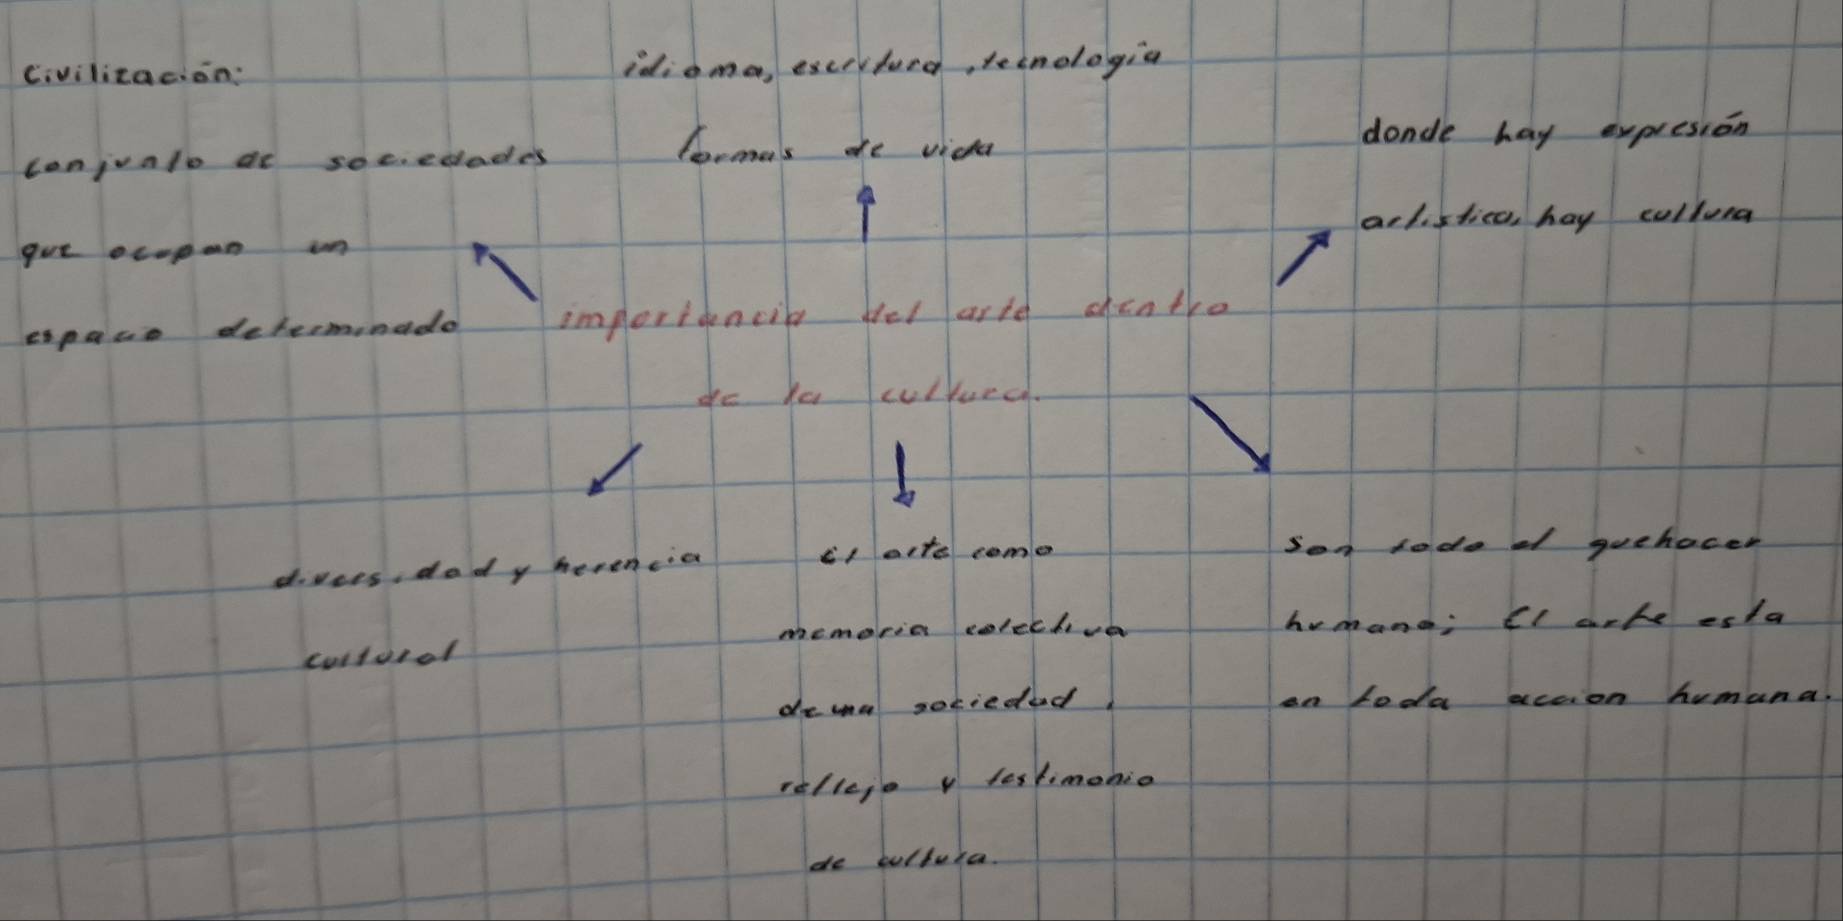 Civilización:
conjunto de sociedades
que ocupan un
espacio determinado
idioma, escritura, tecnología
formas de vida
donde hay expresión
artística, hay cultura
importancia del arte dentro
de la cultura.
diversidad y herencia
cultural
El arte como
memoria colectiva
de una sociedad,
reflejo y testimonio
de cultura.
son todo el quehacer
humano; El arte esta
en toda accion humana.